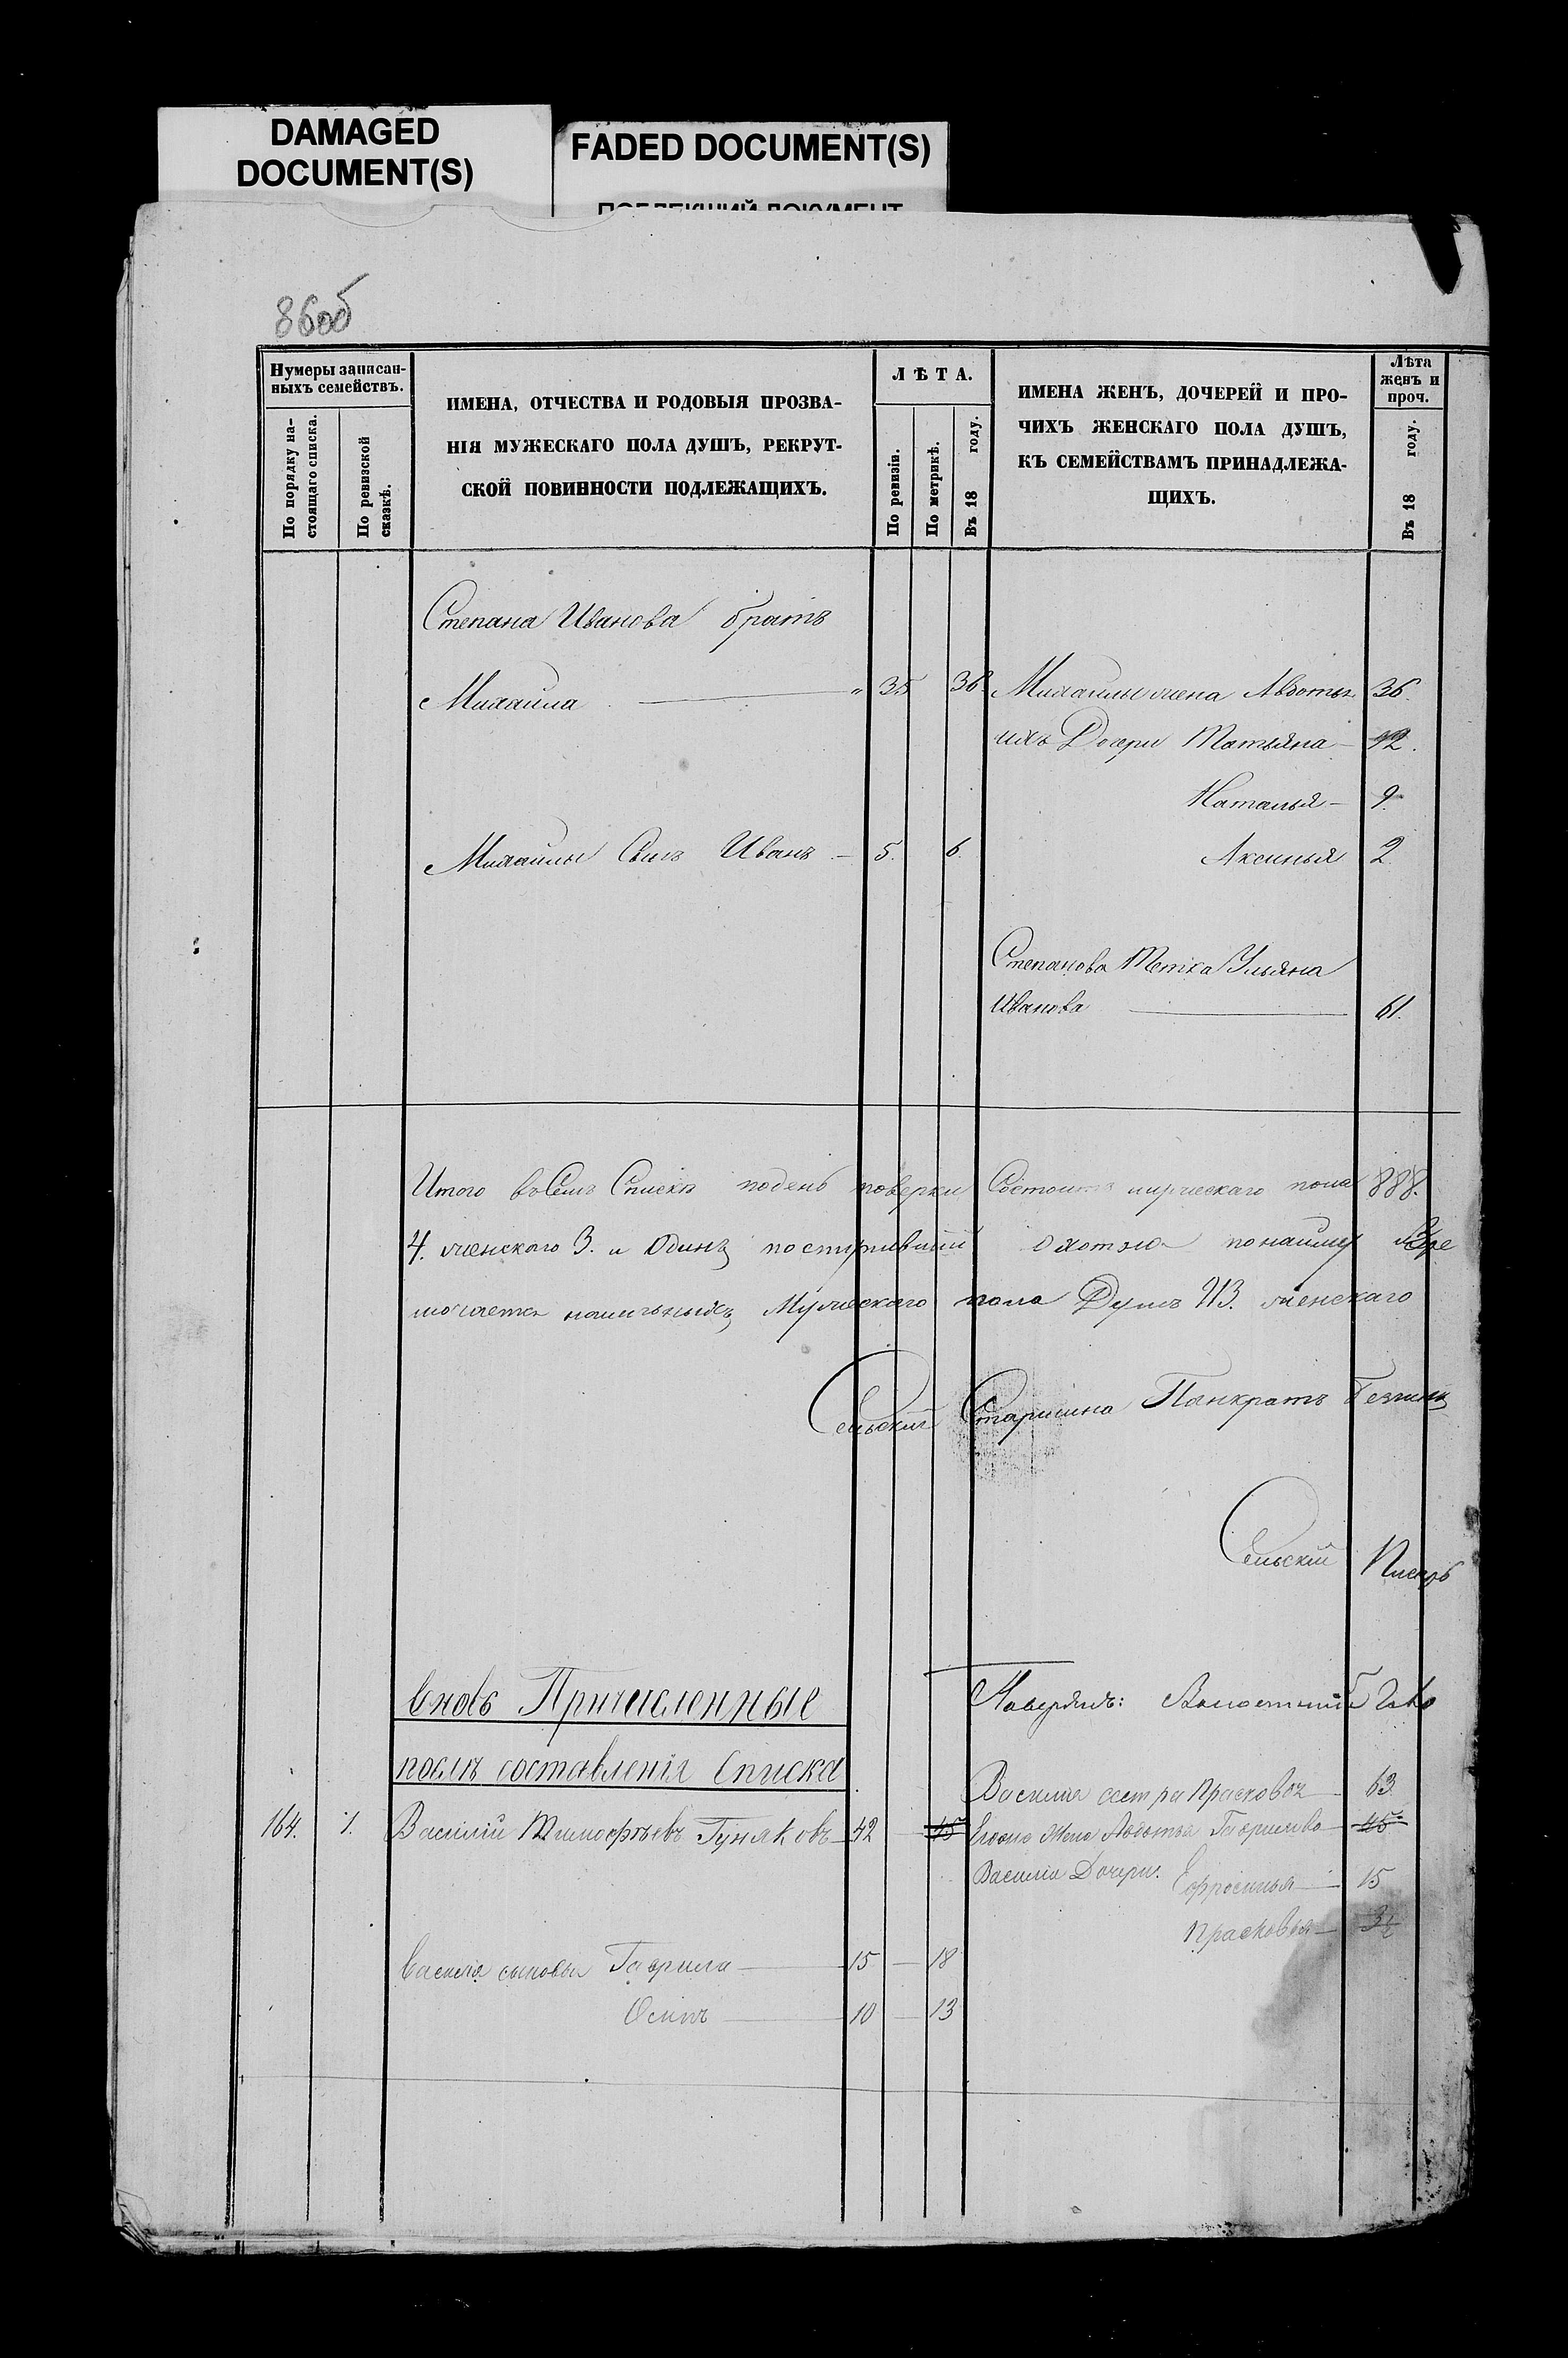 DAMAGED
DOCUMENT(S)
FADED DOCUMENT(S)
86об
Нумеры записан-
ныхъ семействъ.
По порядку на-
стоящаго списка.
По ревизской
сказкѣ.
ИМЕНА, ОТЧЕСТВА И РОДОВЫЯ ПРОЗВА-
НІЯ МУЖЕСКАГО ПОЛА ДУШЪ, РЕКРУТ-
СКОЙ ПОВИННОСТИ ПОДЛЕЖАЩИХЪ.
ЛѢТА.
По ревизіи.
По метрикѣ.
Въ 18 году.
ИМЕНА ЖЕНЪ, ДОЧЕРЕЙ И ПРО-
ЧИХЪ ЖЕНСКАГО ПОЛА ДУШЪ,
КЪ СЕМЕЙСТВАМЪ ПРИНАДЛЕЖА-
ЩИХЪ.
Лѣта
женъ и
проч.
Въ 18 году.
Степана Иванова братъ
Михаила " 35 36 Михаилы жена Авдотья 36.
ихъ Дочери Татьяна 12.
Наталья 9.
Михаилы Сынъ Иванъ 5. 6. Аксинья 2
Степанова Тетка Ульяна
Иванова 61.
Итого въ Семъ Списке по день поверки Состоитъ мужескаго пола 888.
4. женского 3. и Одинъ поступивший охотою по найму
наличныхъ Мужескаго пола Душъ женскаго
Сельский Старшина Панкратъ
Сельский Писарь
Вновь Причисленные
послѣ составленія Списка
Поверялъ: Волостный
Василия сестра Прасковья 63
164. 1. Василий Тимофѣевъ Гуняковъ 42 45 Егоова Жена Авдотья Гаврилова 45
Василия Дочери: Ефросинья 15
Прасковья
Василія сыновья Гаврила 15 18
Осипъ 10 13